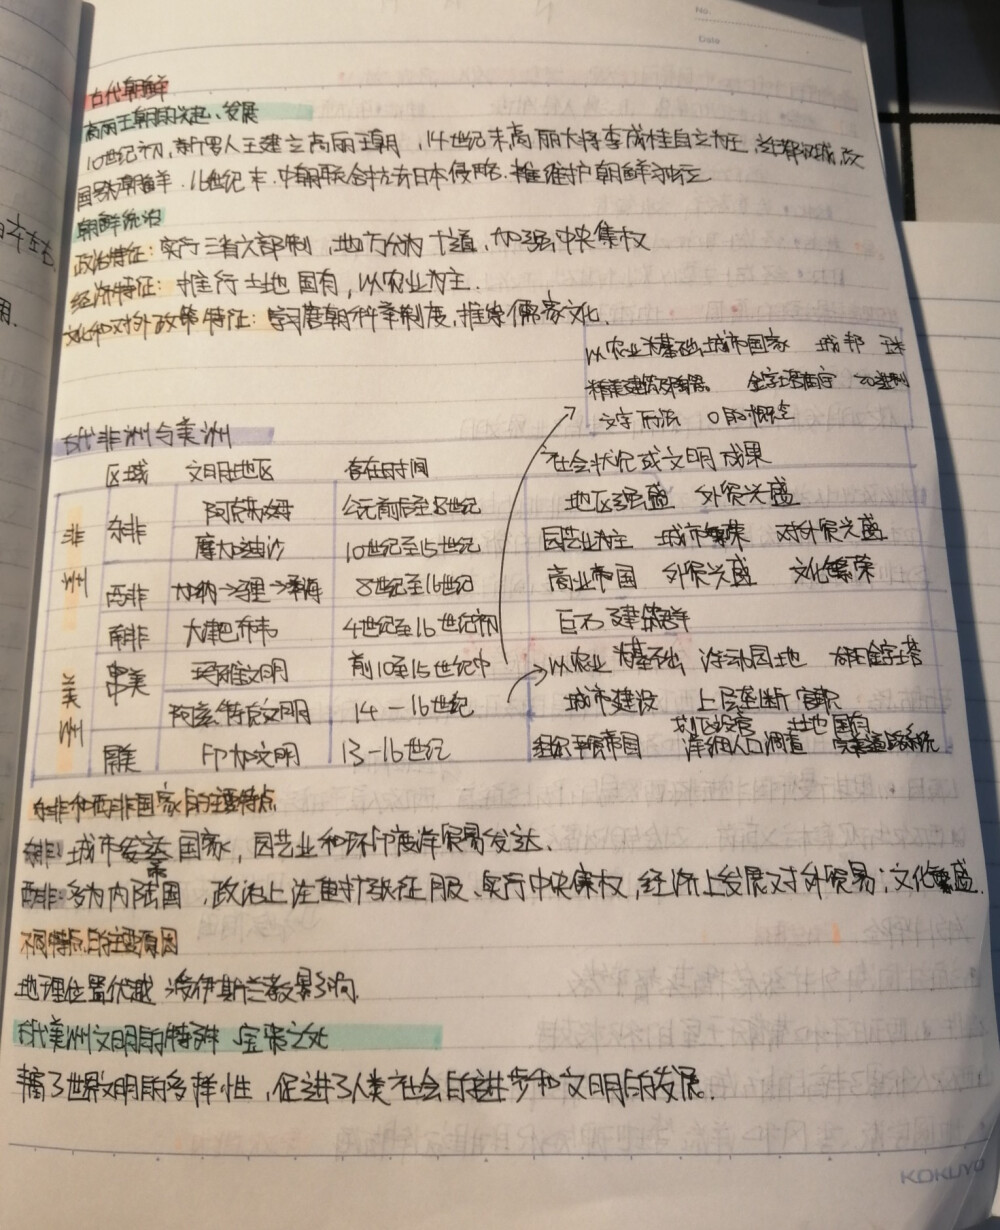 No.
Date
古代朝鲜
高丽王朝的兴起、发展
10世纪初,新罗人王建立高丽王朝,14世纪末高丽大将李成桂自立为王,定都汉城,改
国号朝鲜.16世纪末.中朝联合抗击日本侵略.维护朝鲜独立
朝鲜统治
政治特征:实行三省六部制,地方分为十道,加强中央集权
经济特征:推行土地国有,以农业为主.
文化和对外政策特征:学习唐朝科举制度,推崇儒家文化.
以农业为基础 城市国家 城邦 玉米
精美建筑 金字塔庙宇 20进制
文字历法 0的概念
古代非洲与美洲
区域 文明地区 存在时间 社会状况或文明成果
非洲 东非 阿克苏姆 公元前后至8世纪 地区强盛 外贸兴盛
摩加迪沙 10世纪至15世纪 园艺业为主 城市繁荣 对外贸兴盛
西非 加纳→马里→桑海 8世纪至16世纪 商业帝国 外贸兴盛 文化繁荣
南非 大津巴布韦 4世纪至16世纪初 巨石建筑群
美洲 中美 玛雅文明 前10至15世纪中 以农业为基础 浮动园地 太阳金字塔
阿兹特克文明 14-16世纪 城市建设 上层垄断官职
划区设官 土地国有
南美 印加文明 13-16世纪 组织严质帝国 详细人口调查 完善道路系统
东非和西非国家的主要特点
东非:城市发达国家,园艺业和环印度洋贸易发达、
西非:多为内陆国,政治上注重扩张征服、实行中央集权,经济上发展对外贸易;文化繁盛.
不同特点的主要原因
地理位置优越 受伊斯兰教影响
古代美洲文明的特殊、宝贵之处
丰富了世界文明的多样性,促进了人类社会的进步和文明的发展.
KOKUYO